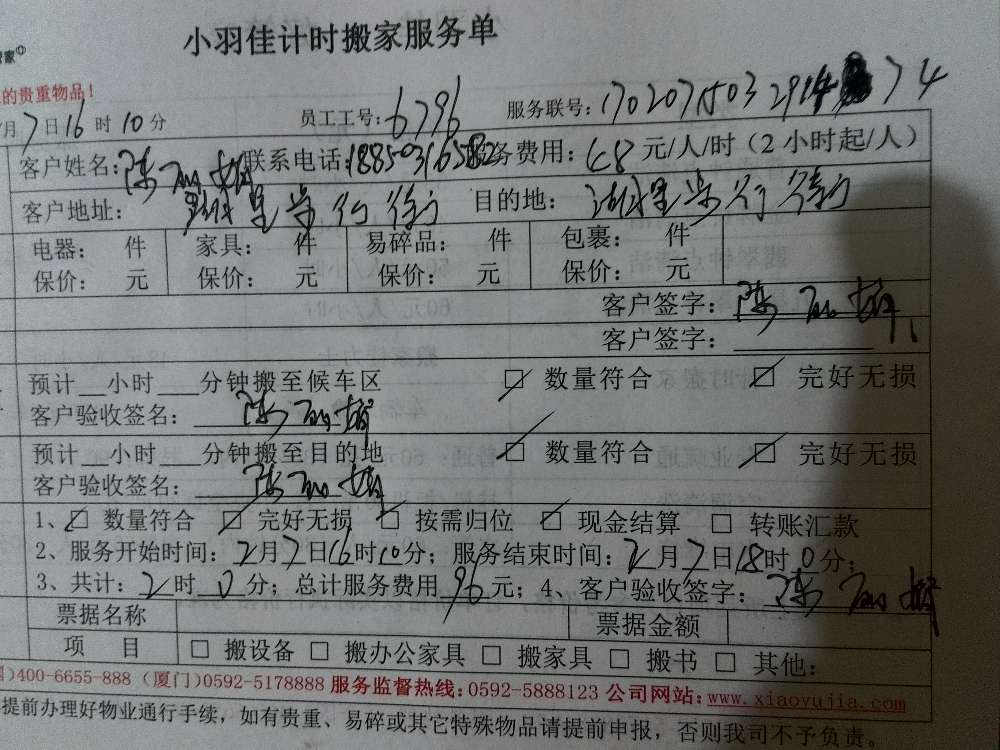 小羽佳计时搬家服务单
管家
的贵重物品！
月7日16时10分 员工工号：6796 服务联号：
客户姓名：陈 联系电话：18850316582 服务费用：48元/人/时（2小时起/人）
客户地址： 目的地：
电器： 件 家具： 件 易碎品： 件 包裹： 件
保价： 元 保价： 元 保价： 元 保价： 元
客户签字：陈
客户签字：
预计__小时___分钟搬至候车区 ☑ 数量符合 ☑ 完好无损
客户验收签名：陈
预计__小时___分钟搬至目的地 ☑ 数量符合 ☑ 完好无损
客户验收签名：陈
1、☑ 数量符合 ☑ 完好无损 ☑ 按需归位 ☑ 现金结算 □ 转账汇款
2、服务开始时间：2月7日16时10分；服务结束时间：2月7日18时0分；
3、共计：2时0分；总计服务费用96元；4、客户验收签字：陈
票据名称 票据金额
项 目 □ 搬设备 □ 搬办公家具 □ 搬家具 □ 搬书 □ 其他：
)400-6655-888 (厦门)0592-5178888 服务监督热线:0592-5888123 公司网站:www.xiaoyujia.com
提前办理好物业通行手续，如有贵重、易碎或其它特殊物品请提前申报，否则我司不予负责。